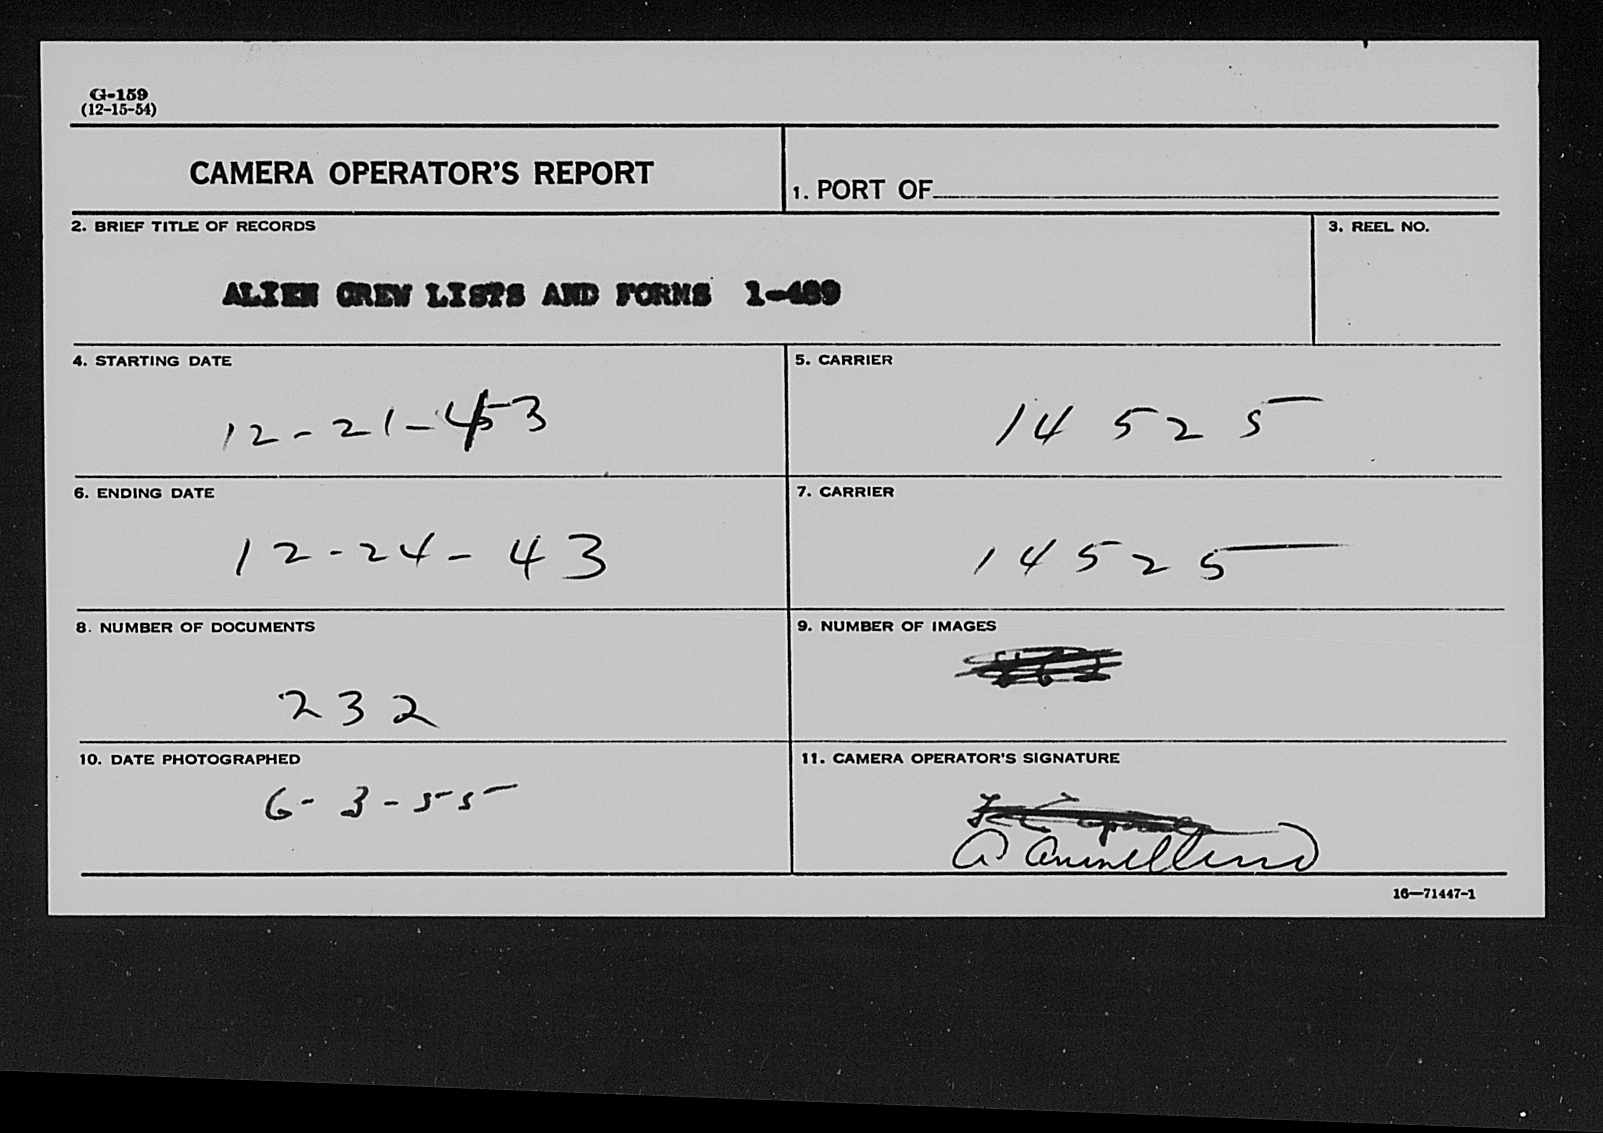 G-159
(12-15-54)
CAMERA OPERATOR'S REPORT
1. PORT OF
2. BRIEF TITLE OF RECORDS
3. REEL NO.
ALIEN CREW LISTS AND FORMS 1-489
4. STARTING DATE
12-21-43
5. CARRIER
14525
6. ENDING DATE
12-24-43
7. CARRIER
14525
8. NUMBER OF DOCUMENTS
232
9. NUMBER OF IMAGES
10. DATE PHOTOGRAPHED
6-3-55
11. CAMERA OPERATOR'S SIGNATURE
16—71447-1